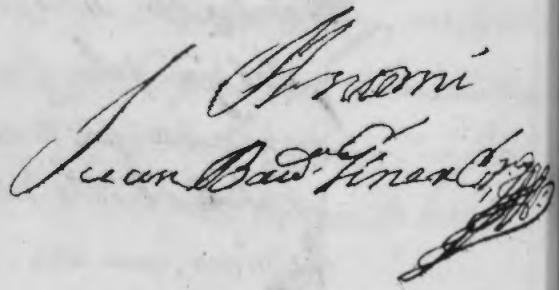 Antemi
Juan Baud.ta Giner